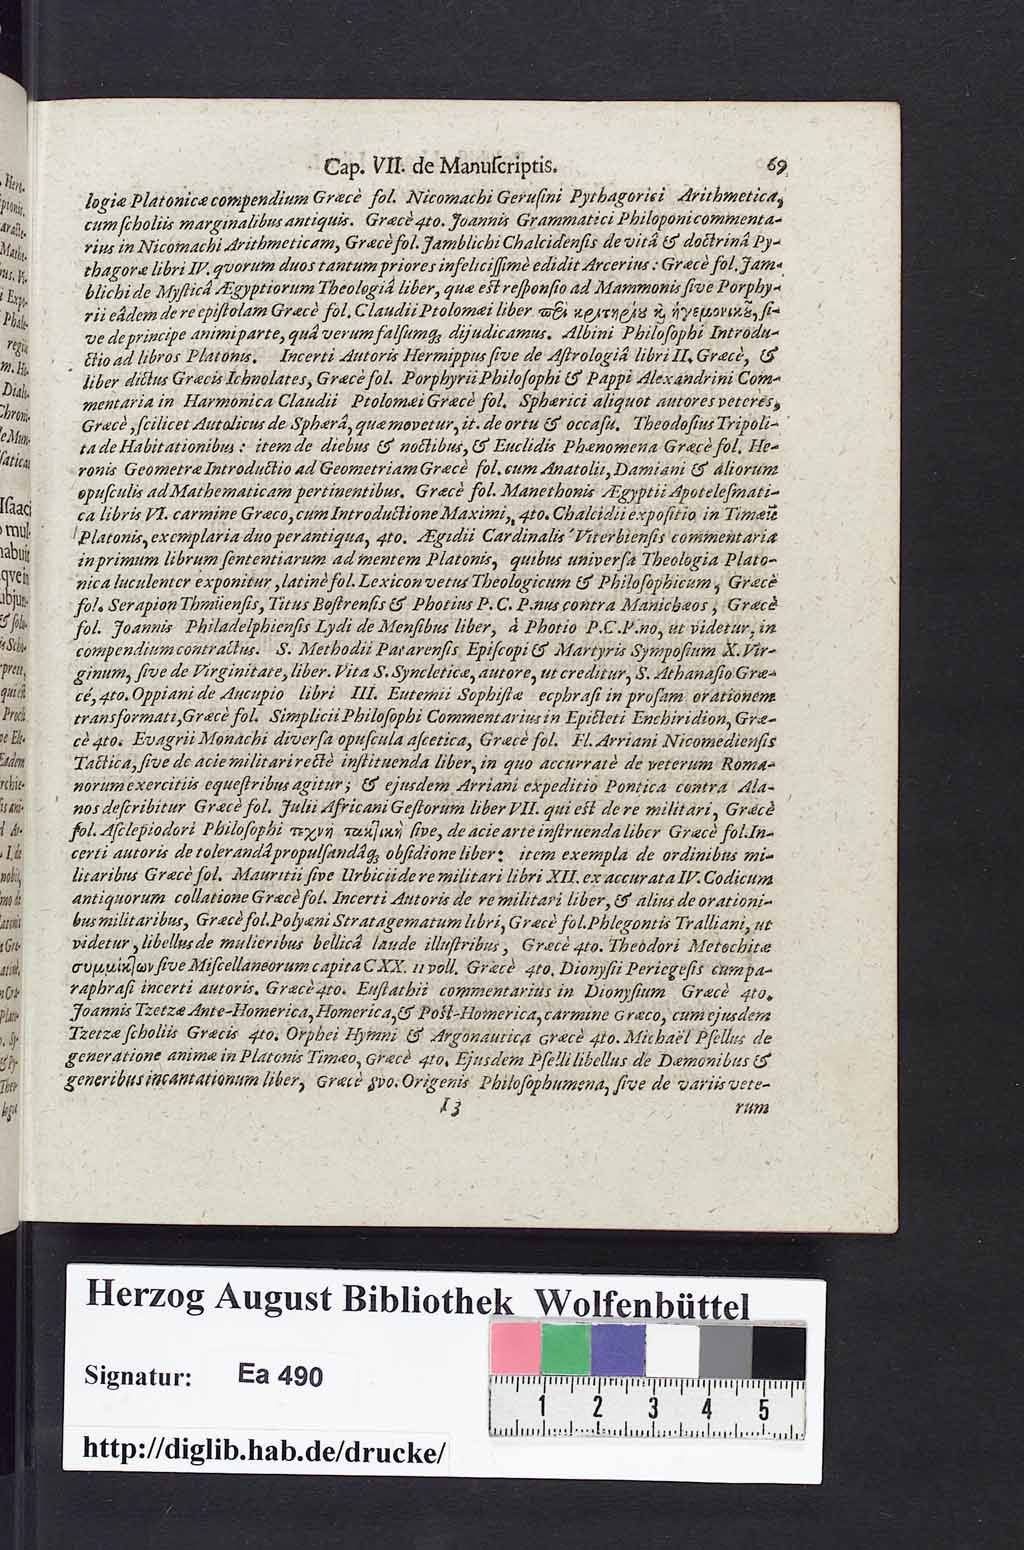 Cap. VII. de Manuſcriptis. 69
logiæ Platonicæ compendium Græcè fol. Nicomachi Geruſini Pythagorici Arithmetica,
cum ſcholiis marginalibus antiquis. Græcè 4to. Joannis Grammatici Philoponi commenta-
rius in Nicomachi Arithmeticam, Græcè fol. Jamblichi Chalcidenſis de vitâ & doctrinâ Py-
thagoræ libri IV. qvorum duos tantum priores infeliciſſimè edidit Arcerius: Græcè fol. Jam-
blichi de Myſticâ Ægyptiorum Theologiâ liber, quæ eſt reſponſio ad Mammonis ſive Porphy-
rii eâdem de re epiſtolam Græcè fol. Claudii Ptolomæi liber περὶ κριτηρίου κ̀ ἡγεμονικοῦ, ſi-
ve de principe animi parte, quâ verum falſumq; dijudicamus. Albini Philoſophi Introdu-
ctio ad libros Platonis. Incerti Autoris Hermippus ſive de Aſtrologiâ libri II. Græcè, &
liber dictus Græcis Ichnolates, Græcè fol. Porphyrii Philoſophi & Pappi Alexandrini Com-
mentaria in Harmonica Claudii Ptolomæi Græcè fol. Sphærici aliquot autores veteres,
Græcè, ſcilicet Autolicus de Sphærâ, quæ movetur, it. de ortu & occaſu. Theodoſius Tripoli-
ta de Habitationibus: item de diebus & noctibus, & Euclidis Phænomena Græcè fol. He-
ronis Geometræ Introductio ad Geometriam Græcè fol. cum Anatolii, Damiani & aliorum
opuſculis ad Mathematicam pertinentibus. Græcè fol. Manethonis Ægyptii Apoteleſmati-
ca libris VI. carmine Græco, cum Introductione Maximi, 4to. Chalcidii expoſitio in Timæū
Platonis, exemplaria duo perantiqua, 4to. Ægidii Cardinalis Viterbienſis commentaria
in primum librum ſententiarum ad mentem Platonis, quibus univerſa Theologia Plato-
nica luculenter exponitur, latinè fol. Lexicon vetus Theologicum & Philoſophicum, Græcè
fol. Serapion Thmüenſis, Titus Boſtrenſis & Photius P. C. P.nus contra Manichæos, Græcè
fol. Joannis Philadelphienſis Lydi de Menſibus liber, à Photio P.C.P.no, ut videtur, in
compendium contractus. S. Methodii Patarenſis Epiſcopi & Martyris Sympoſium X. Vir-
ginum, ſive de Virginitate, liber. Vita S. Syncleticæ, autore, ut creditur, S. Athanaſio Græ-
cé, 4to. Oppiani de Aucupio libri III. Eutemii Sophiſtæ ecphraſi in proſam orationem
transformati, Græcè fol. Simplicii Philoſophi Commentarius in Epicteti Enchiridion, Græ-
cè 4to. Evagrii Monachi diverſa opuſcula aſcetica, Græcè fol. Fl. Arriani Nicomedienſis
Tactica, ſive de acie militari rectè inſtituenda liber, in quo accuratè de veterum Roma-
norum exercitiis equeſtribus agitur; & ejusdem Arriani expeditio Pontica contra Ala-
nos deſcribitur Græcè fol. Julii Africani Geſtorum liber VII. qui eſt de re militari, Græcè
fol. Aſclepiodori Philoſophi τεχνὴ τακτικὴ ſive, de acie arte inſtruenda liber Græcè fol. In-
certi autoris de tolerandâ propulſandâq; obſidione liber: item exempla de ordinibus mi-
litaribus Græcè fol. Mauritii ſive Urbicii de re militari libri XII. ex accurata IV. Codicum
antiquorum collatione Græcè fol. Incerti Autoris de re militari liber, & alius de orationi-
bus militaribus, Græcè fol. Polyæni Stratagematum libri, Græcè fol. Phlegontis Tralliani, ut
videtur, libellus de mulieribus bellicâ laude illuſtribus, Græcè 4to. Theodori Metochitæ
συμμίκτων ſive Miſcellaneorum capita CXX. 11 voll. Græcè 4to. Dionyſii Periegeſis cum pa-
raphraſi incerti autoris. Græcè 4to. Euſtathii commentarius in Dionyſium Græcè 4to.
Joannis Tzetzæ Ante-Homerica, Homerica, & Poſt-Homerica, carmine Græco, cum ejusdem
Tzetzæ ſcholiis Græcis 4to. Orphei Hymni & Argonautica Græcè 4to. Michaël Pſellus de
generatione animæ in Platonis Timæo, Græcè 4to. Ejusdem Pſelli libellus de Dæmonibus &
generibus incantationum liber, Græcè 8vo. Origenis Philoſophumena, ſive de variis vete-
I 3 rum
Herzog August Bibliothek Wolfenbüttel
Signatur: Ea 490
1 2 3 4 5
http://diglib.hab.de/drucke/